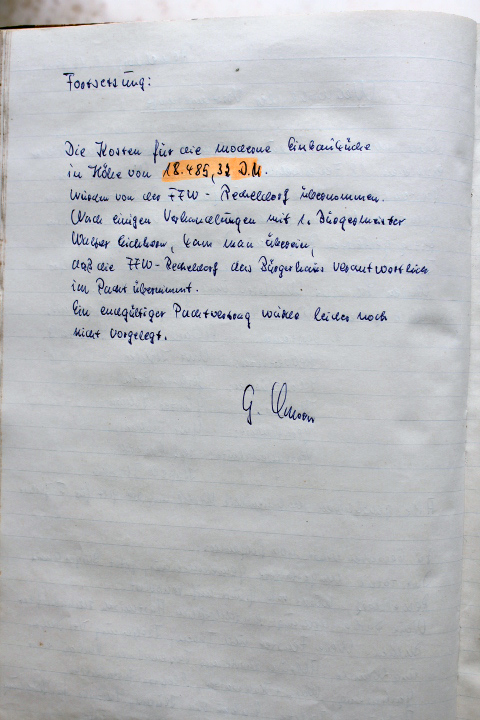 Fortsetzung:
Die Kosten für die moderne Einbauküche
in Höhe von 18.485,32 D.M.
wurden von der FFW - Recheldorf übernommen.
Nach einigen Verhandlungen mit 1. Bürgermeister
Walter Eichhorn, kam man überein,
daß die FFW-Recheldorf das Bürgerhaus verantwortlich
im Pacht übernimmt.
Ein endgültiger Pachtvertrag wurde leider noch
nicht vorgelegt.
G.